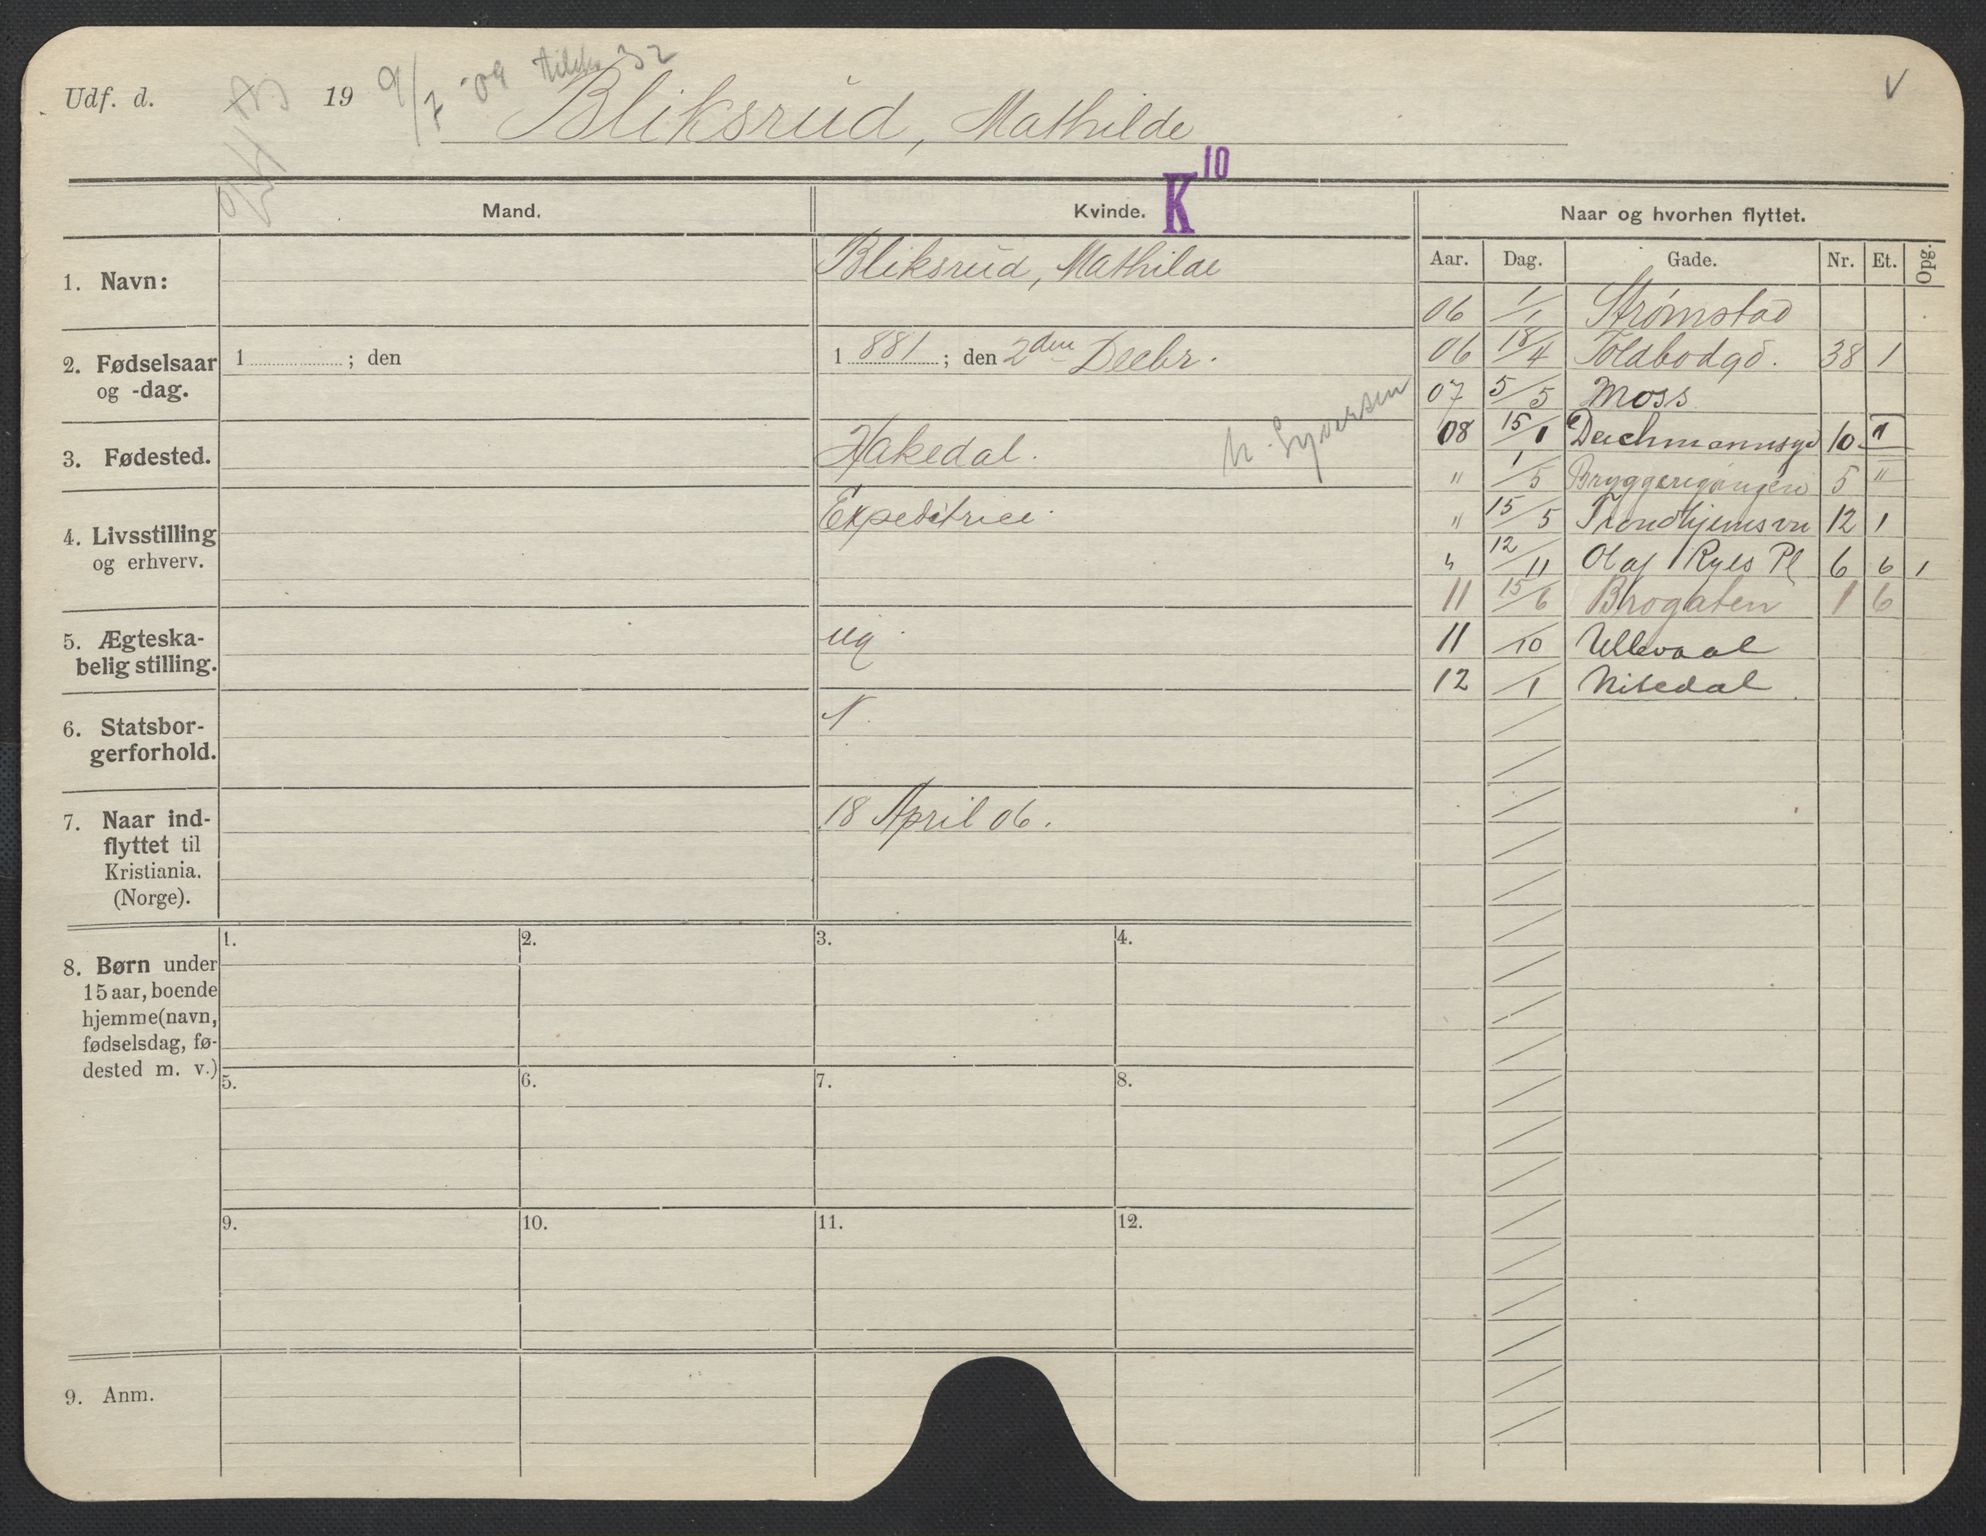 Udf. d. 19 9/7 '09 32
Bliksrud, Mathilde
V
Mand.
Kvinde. K 10
Naar og hvorhen flyttet.
Aar. Dag. Gade. Nr. Et. Opg.
1. Navn:
Bliksrud, Mathilde
2. Fødselsaar
og -dag.
1 ; den
1 881 ; den 2den Decbr.
3. Fødested.
Hakedal.
4. Livsstilling
og erhverv.
Expeditrice.
5. Ægteska-
belig stilling.
ug.
6. Statsbor-
gerforhold.
N.
7. Naar ind-
flyttet til
Kristiania.
(Norge).
18 April 06.
06 1/1 Strømstad
06 18/4 Toldbodgd. 38 1
07 5/5 Moss
08 15/1 Deichmannsgd 10 1
" 1/5 Bryggerigangen 5 "
" 15/5 Trondhjemsvn 12 1
" 12/11 Olaf Ryes Pl 6 6 1
11 15/6 Brogaten 1 6
11 /10 Ullevaal
12 /1 Nitedal.
8. Børn under
15 aar, boende
hjemme (navn,
fødselsdag, fø-
dested m. v.)
1. 2. 3. 4.
5. 6. 7. 8.
9. 10. 11. 12.
9. Anm.